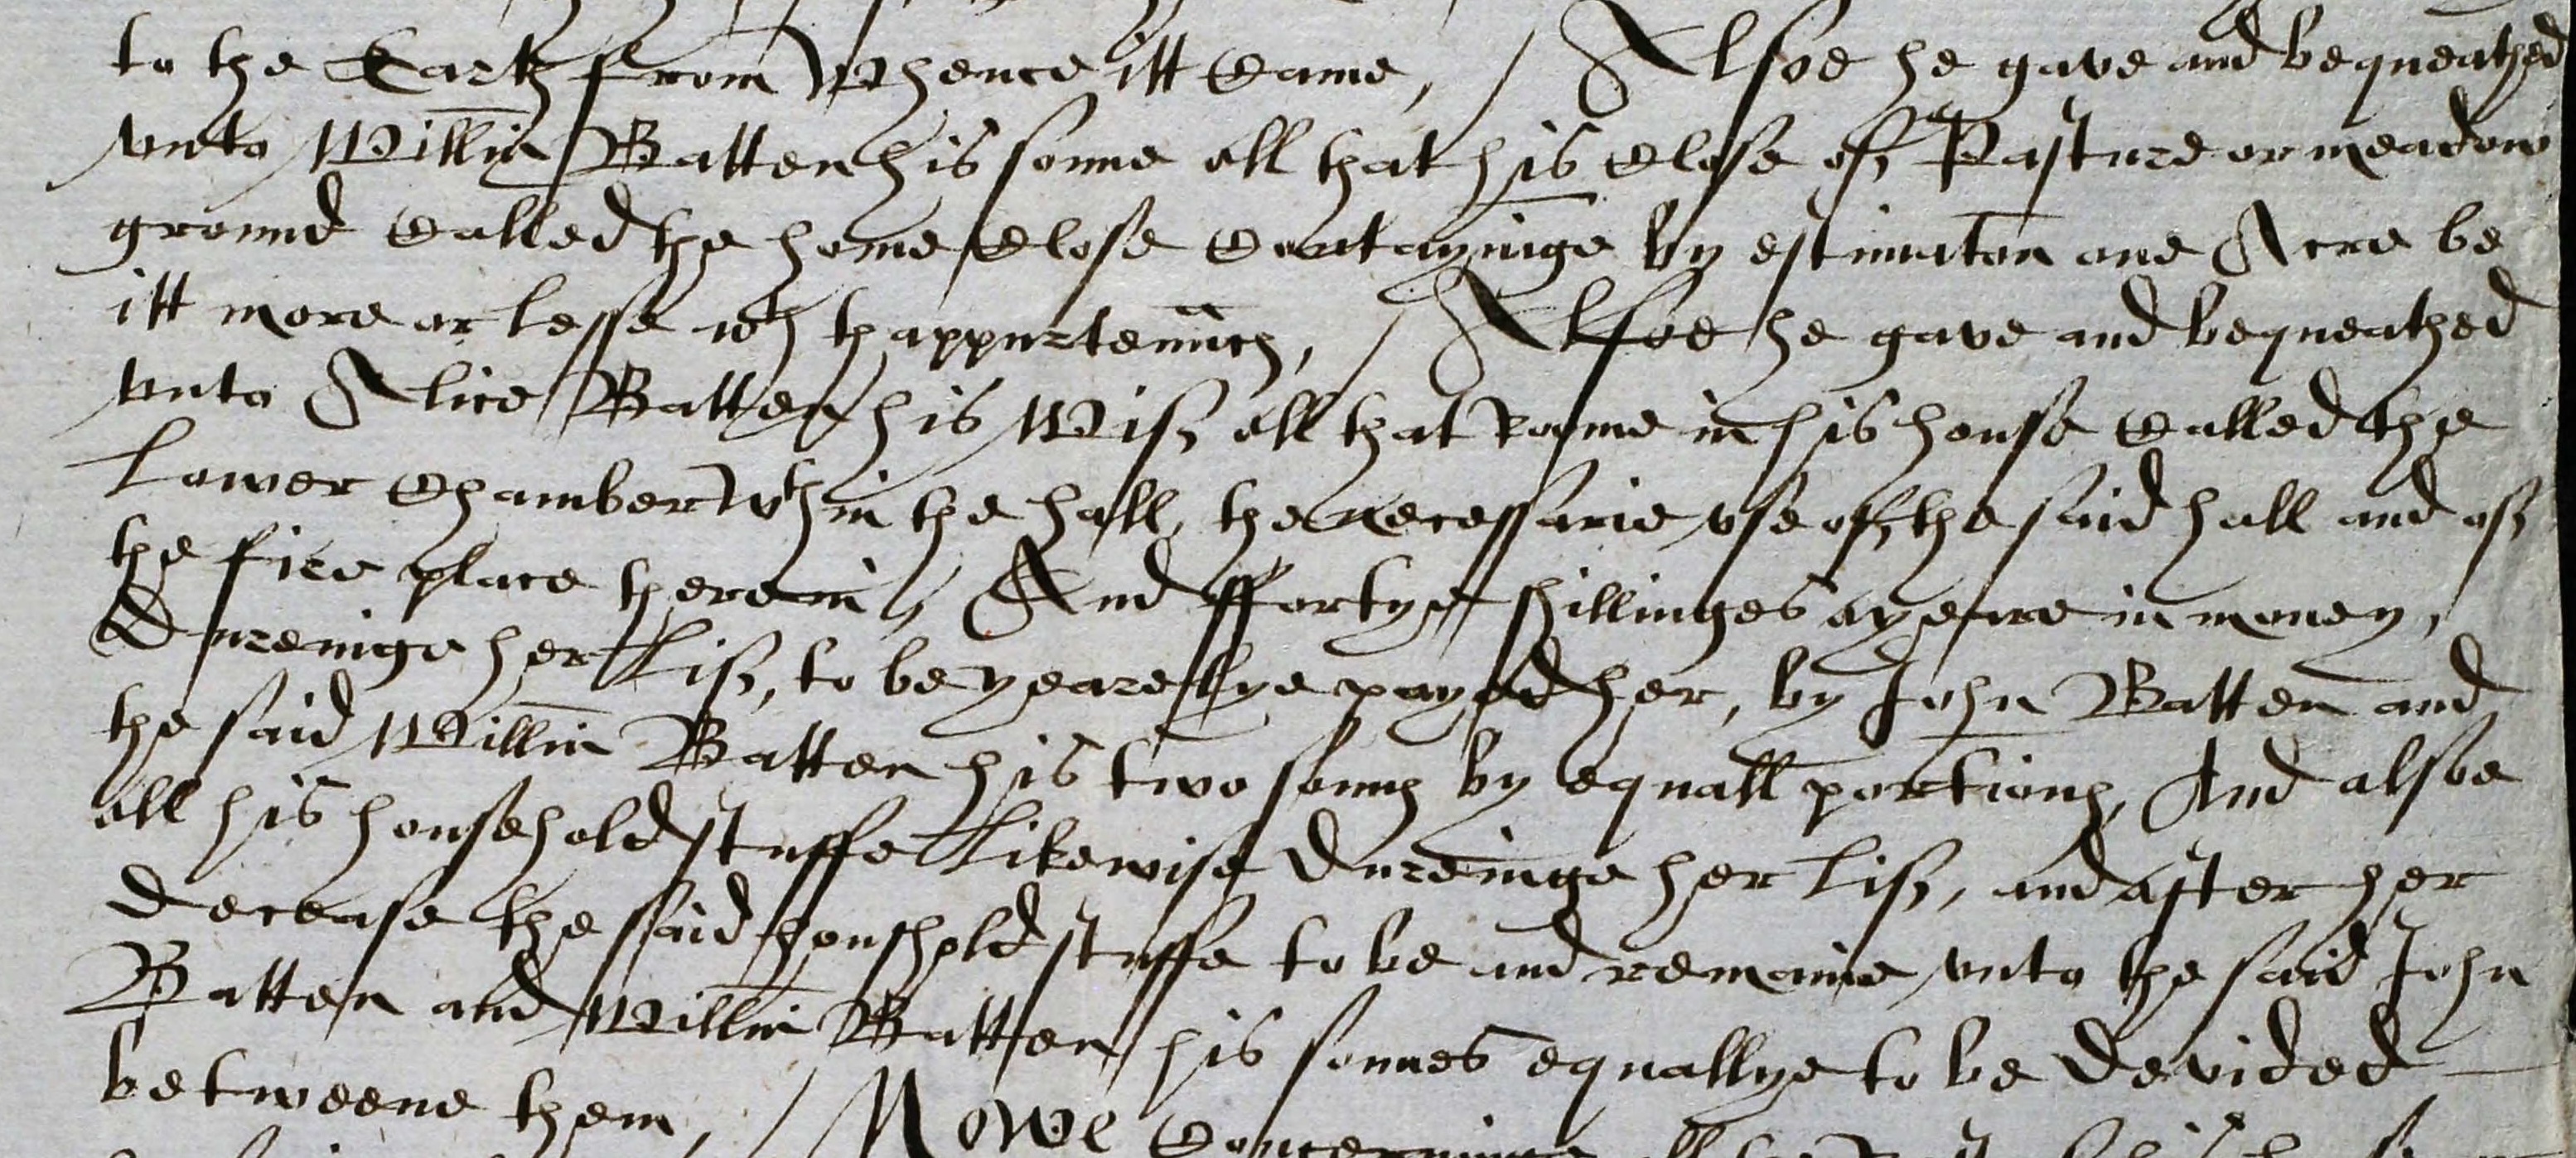 to the Earth from Whence itt Came, / Alsoe he gave and bequeathed
vnto Willm Batten his sonne all that his Close of Pasture or meadow
ground Called the home Close Contayninge by estimaton one Acre be
itt more or lesse wth thappurtennces, / Alsoe he gave and bequeathed
vnto Alice Batten his Wife all that roome in his house Called the
Lower Chamber wthin the hall, the necessarie vse of the said hall and of
the fire place therein, And ffortye shillinges a yeare in money,
Dureinge her Life, to be yearelye payed her, by John Batten and
the said Willm Batten his two sonnes by equall portions, And alsoe
all his household stuffe Likewise dureinge her Life, and after her
decease the said houshold stuffe to be and remaine vnto the said John
Batten and Willm Batten his sonnes equallye to be devided
betweene them, / Nowe Concerninge